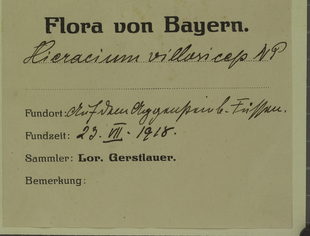 Flora von Bayern.
Hieracium villosiceps NP
Fundort: Auf dem Aggenstein b. Füssen.
Fundzeit: 23. VII. 1918.
Sammler: Lor. Gerstlauer.
Bemerkung: